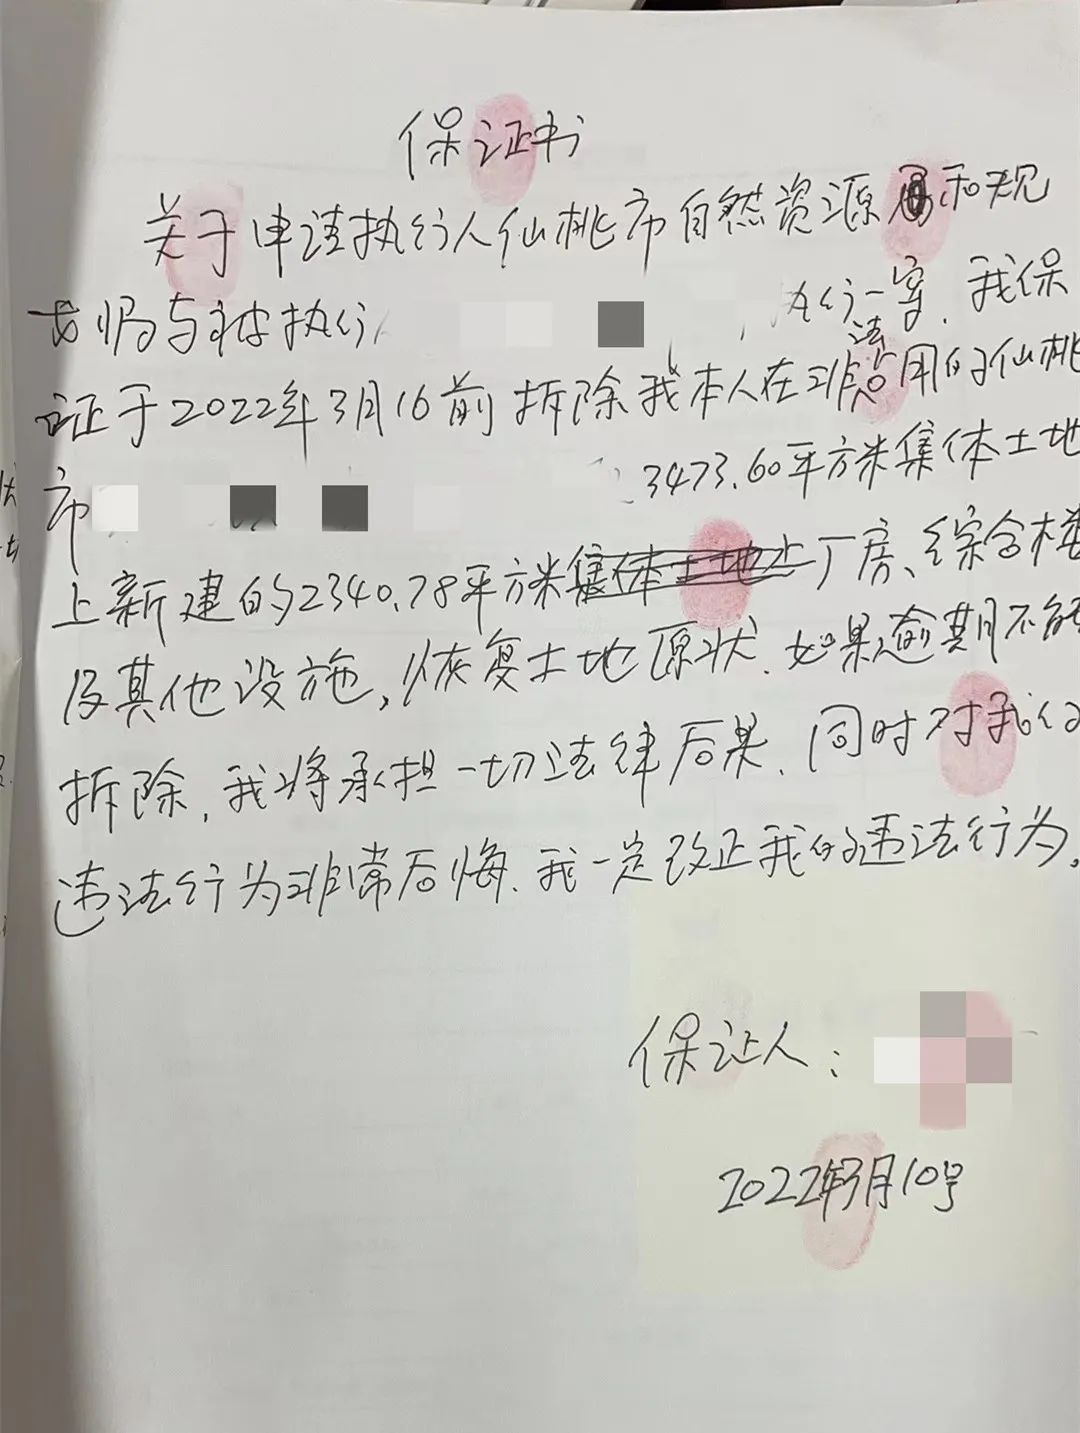 保证书
关于申请执行人仙桃市自然资源和规
划局与被执行 执行一案,我保
证于2022年3月16前拆除我本人在非法占用的仙桃
市 3473.60平方米集体土地
上新建的2340.78平方米集体土地上厂房、综合楼
及其他设施,恢复土地原状.如果逾期不能
拆除,我将承担一切法律后果.同时对我的
违法行为非常后悔.我一定改正我的违法行为.
保证人:
2022年3月10号